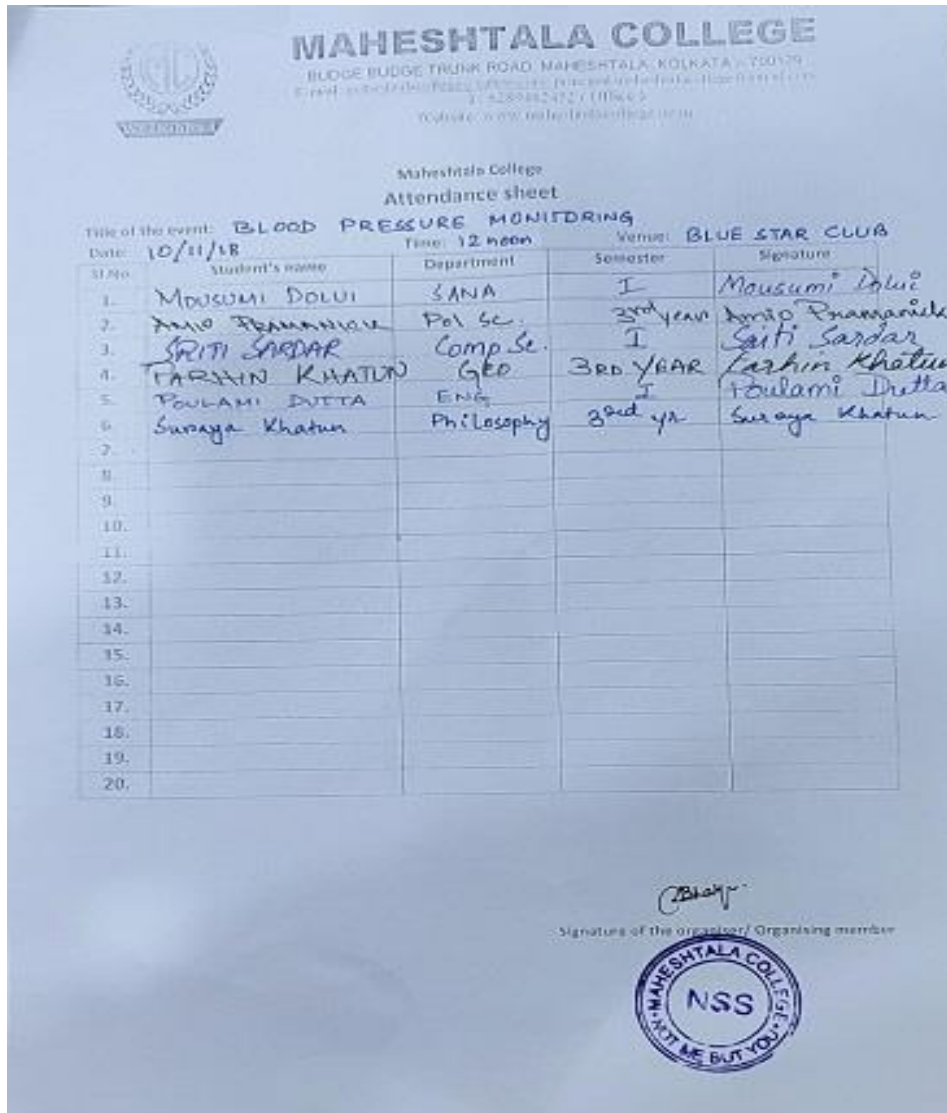 MAHESHTALA COLLEGE
BUDGE BUDGE TRUNK ROAD, MAHESHTALA, KOLKATA - 700139
Maheshtala College
Attendance sheet
Title of the event: BLOOD PRESSURE MONITORING
Date: 10/11/18 Time: 12 noon Venue: BLUE STAR CLUB
Sl.No. Student's name Department Semester Signature
1. MOUSUMI DOLUI SANA I Mousumi Dolui
2. AMIO PRAMANICK Pol Sc. 3rd year Amio Pramanick
3. SRITI SARDAR Comp Sc. I Sriti Sardar
4. FARHIN KHATUN GEO 3RD YEAR Farhin Khatun
5. POULAMI DUTTA ENG I Poulami Dutta
6. Suraya Khatun Philosophy 3rd yr Suraya Khatun
7.
8.
9.
10.
11.
12.
13.
14.
15.
16.
17.
18.
19.
20.
Signature of the organiser/ Organising member
MAHESHTALA COLLEGE
NSS
NOT ME BUT YOU